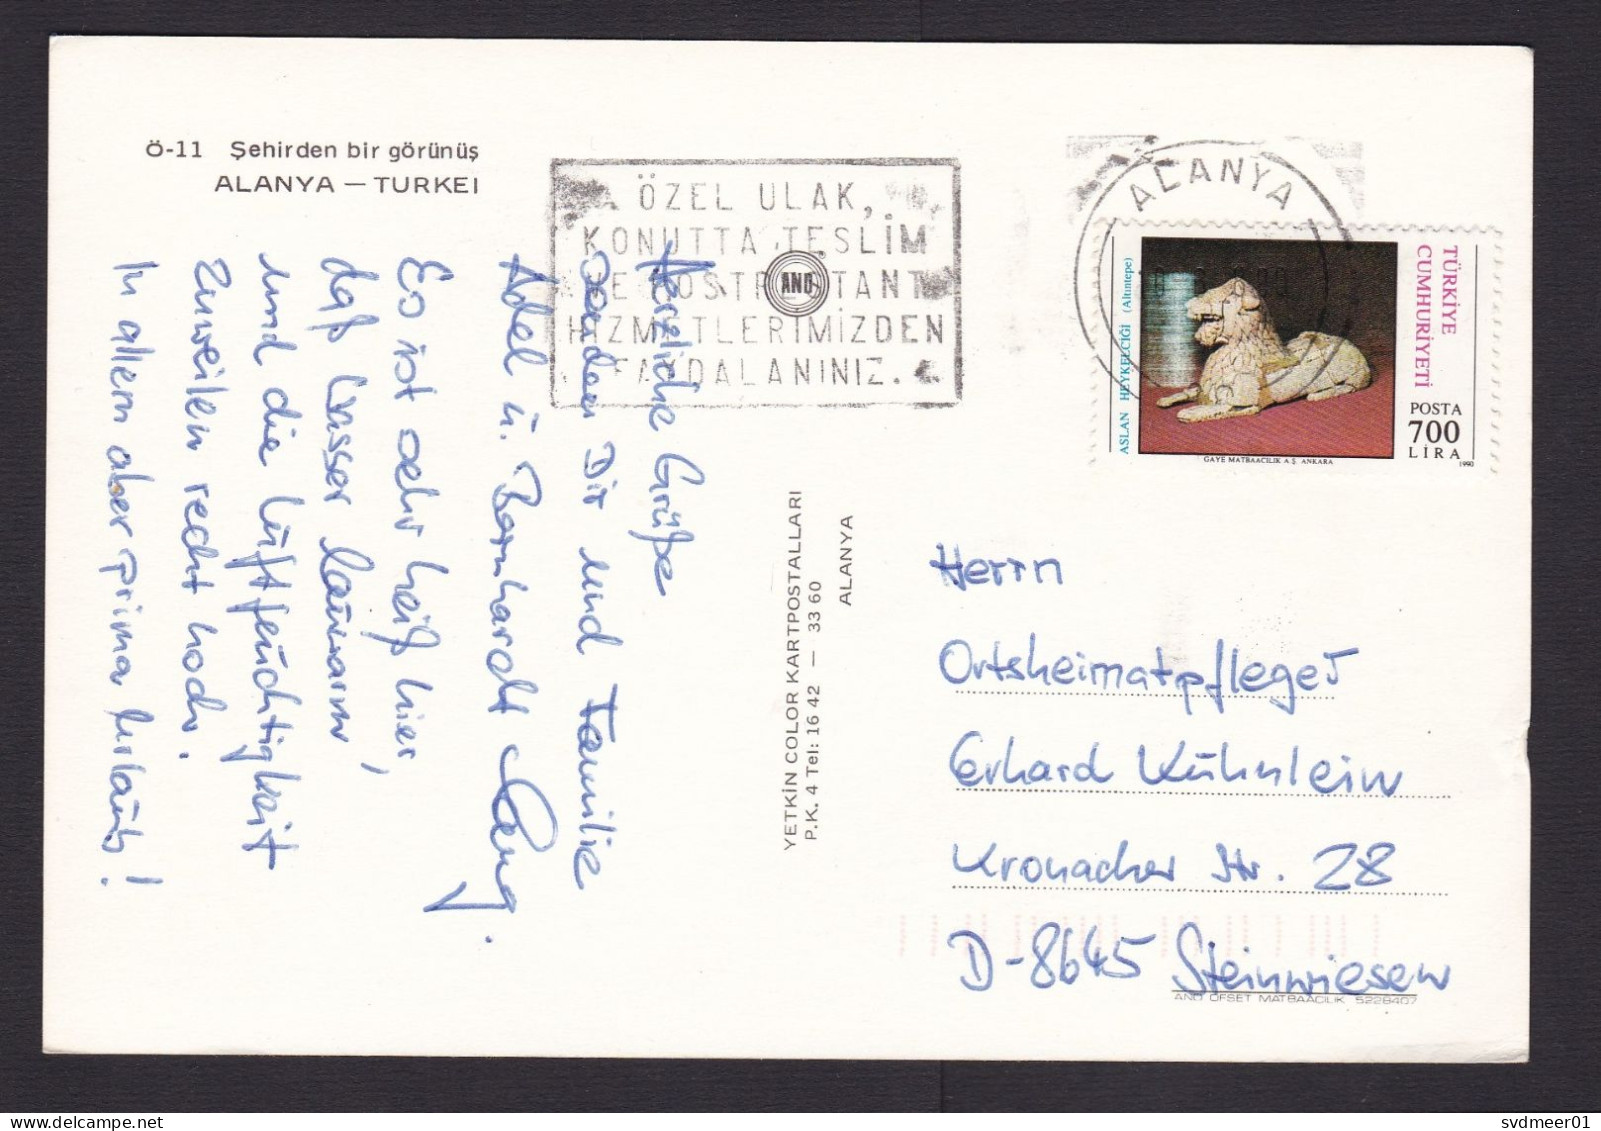 Ö-11 Şehirden bir görünüş
ALANYA — TURKEI
ÖZEL ULAK,
KONUTTA TESLİM
VE POSTRESTANT
HİZMETLERİMİZDEN
FAYDALANINIZ.
AND
ALANYA
TÜRKİYE
CUMHURİYETİ
ASLAN HEYKELCİĞİ (Altıntepe)
POSTA
700
LİRA
GAYE MATBAACILIK A Ş. ANKARA
1990
Herzliche Grüße
senden Dir und Familie
Adel u. Bernhardt
Es ist sehr heiß hier,
daß Wasser lauwarm
und die Luftfeuchtigkeit
zuweilen recht hoch.
In allem aber prima Urlaub!
YETKİN COLOR KARTPOSTALLARI
P.K. 4 Tel: 16 42 — 33 60
ALANYA
Herrn
Ortsheimatpfleger
Erhard Kühnlein
Kronacher Str. 28
D-8645 Steinwiesen
AND OFSET MATBAACILIK 5228407
svdmeer01